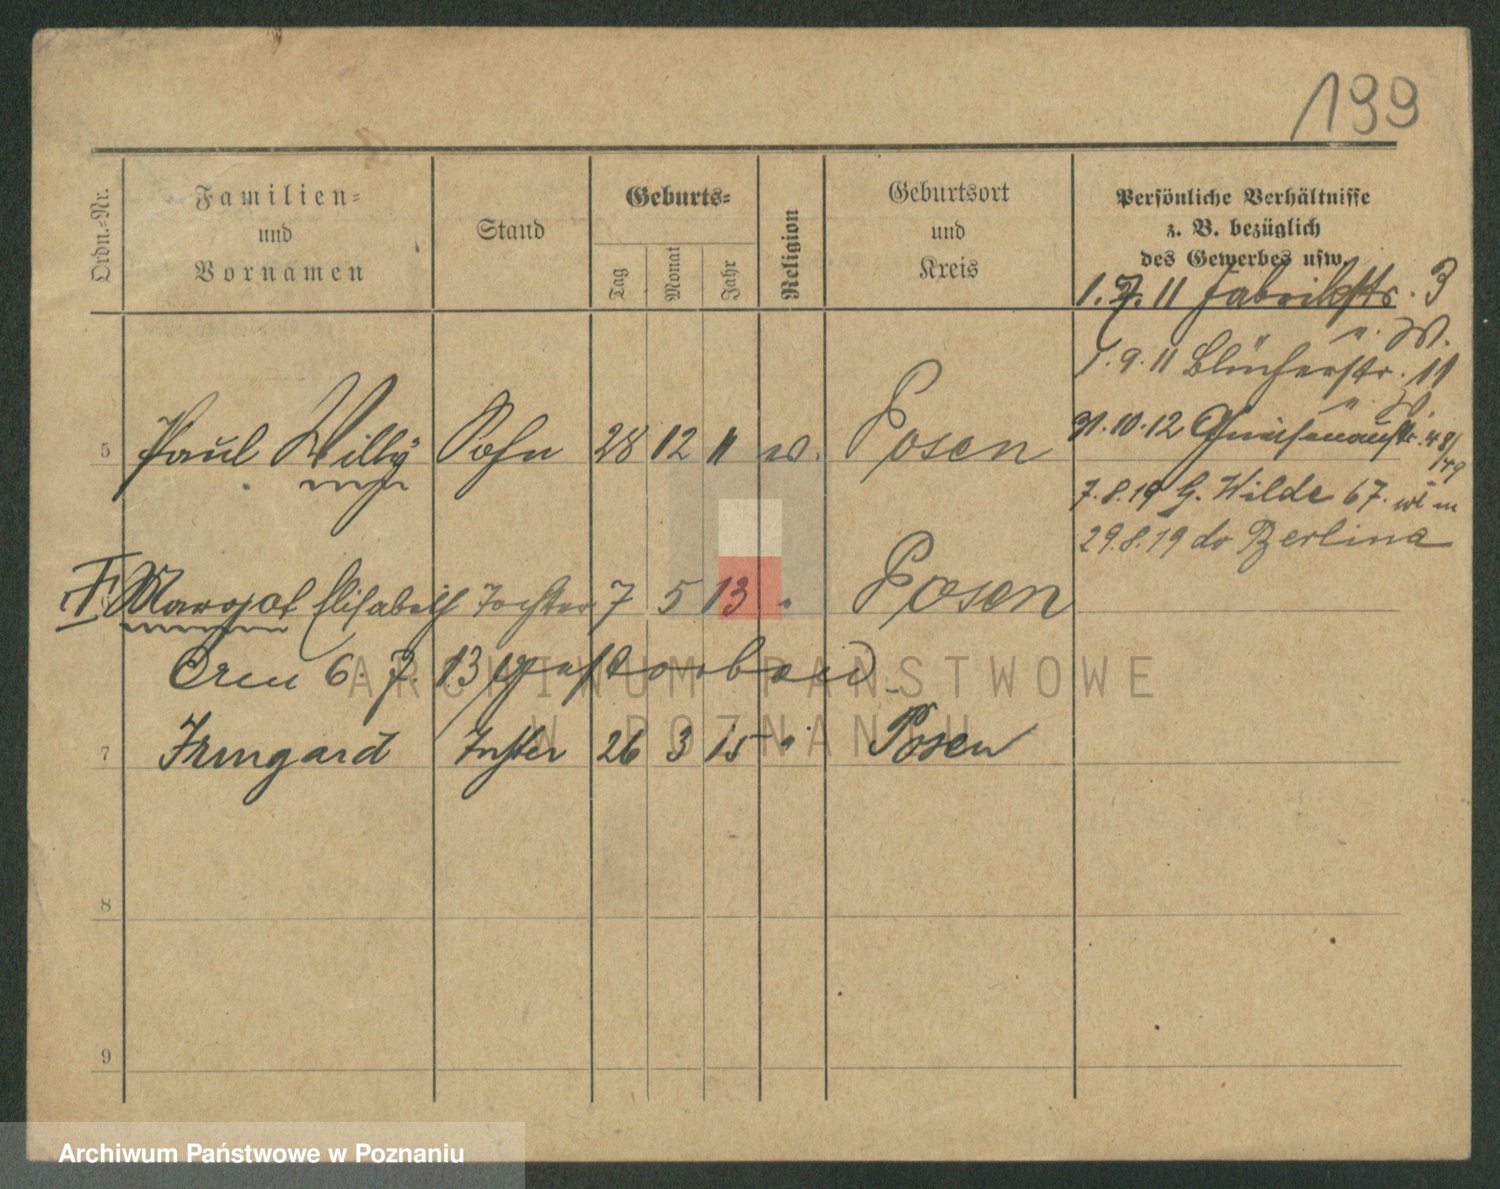 199
Ordn.-Nr.
Familien-
und
Vornamen
Stand
Geburts-
Tag
Monat
Jahr
Religion
Geburtsort
und
Kreis
Persönliche Verhältnisse
z. B. bezüglich
des Gewerbes usw.
1. 7. 11 Fabrikstr. 3
v. W.
1. 9. 11 Blücherstr. 11
v. W.
31.10.12 Gneisenaustr. 48/49
7.8.19 G. Wilde 67.
29.8.19 do Berlina
5 Paul Willy Sohn 28 12 11 ev. Posen
Margot Elisabeth Tochter 7 5 13 " Posen
Am 6. 7. 13 gestorben
7 Irmgard Tochter 26 3 15 " Posen
8
9
ARCHIWUM PAŃSTWOWE
W POZNANIU
Archiwum Państwowe w Poznaniu